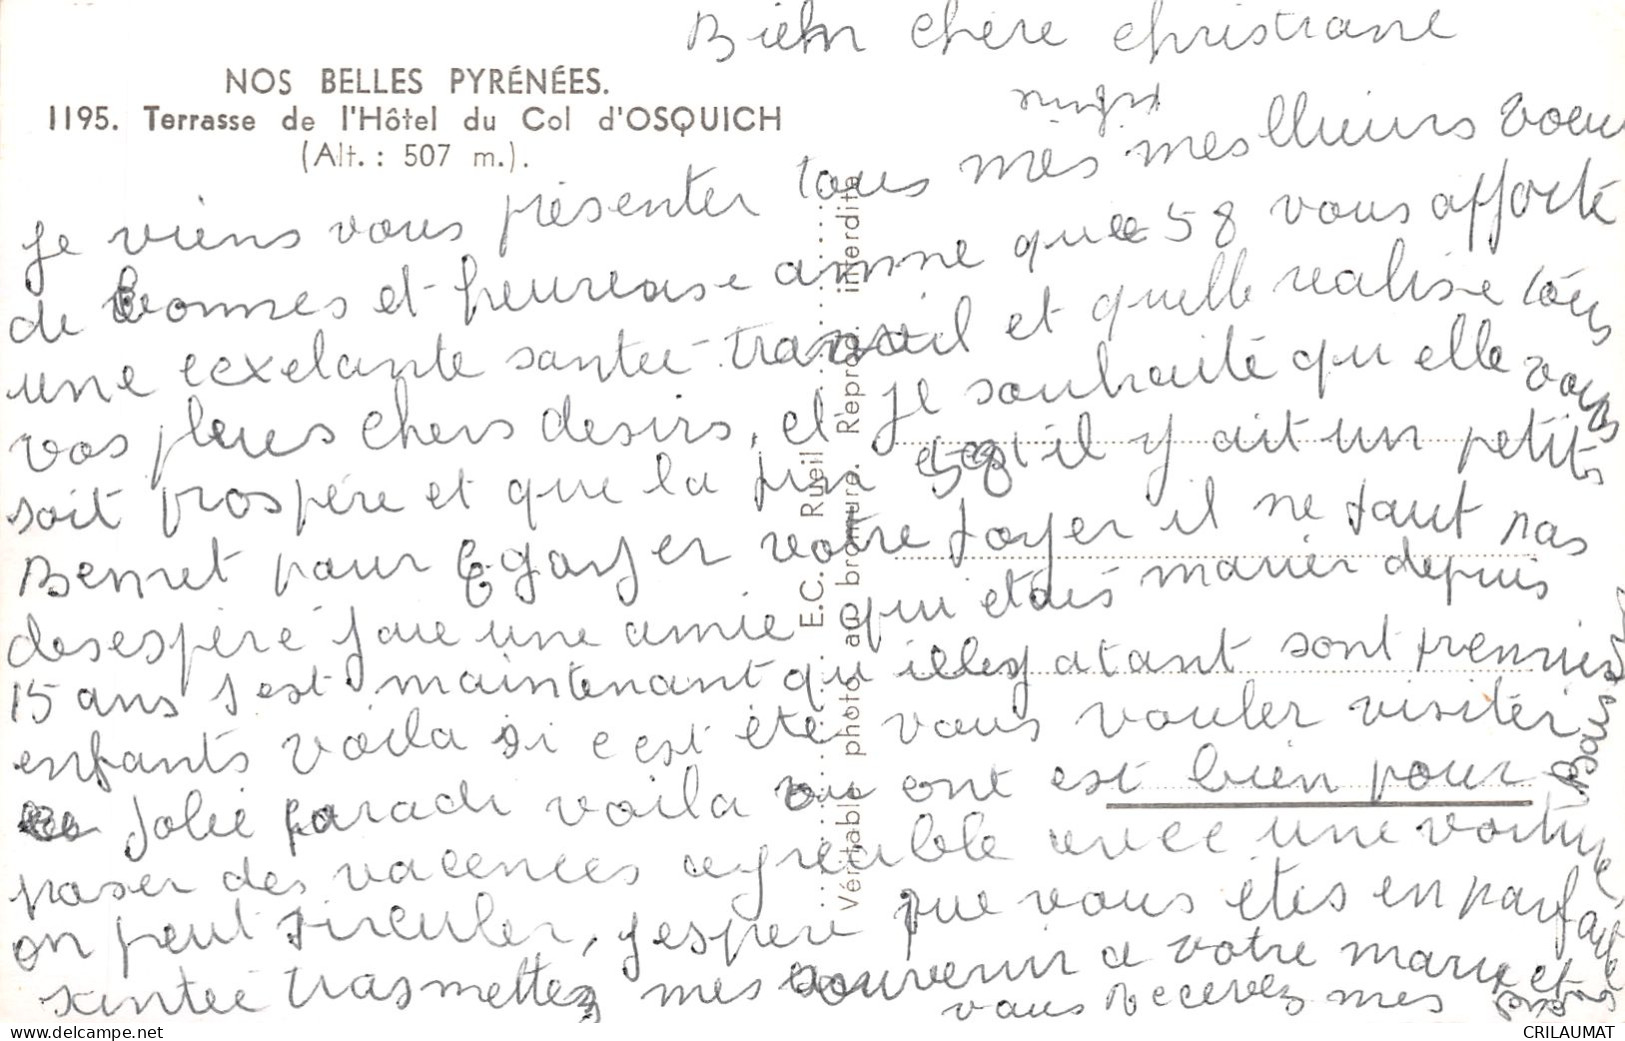 Bien chère christiane
NOS BELLES PYRÉNÉES.
1195. Terrasse de l'Hôtel du Col d'OSQUICH
(Alt. : 507 m.).
Je viens vous présenter tous mes meslleiurs voeux
de bonnes et heureuse annne que 58 vous apporte
une eexelante santee travail et quelle realise tous
vos pleus chers desirs, et je souhaite qu elle vous
soit prospère et que la fin 58 il y ait un petits
Bennet pour Egayer votre foyer il ne faut pas
desespere j'aie une amie qui etais marier depuis
15 ans s est maintenant qu illey atant sont premier
enfants voila si c est été vous vouler visiter
Jolie paradi voila ou ont est bien pour
paser des vacences agreable avec une voiture
on peut sirculer, j espere que vous êtes en parfaite
santee trasmettez mes souvenir a votre marie et
vous Recevez mes
Baisers
E.C. Rueil
Véritable photo au bromure. Reprod. interdite
www.delcampe.net
CRILAUMAT